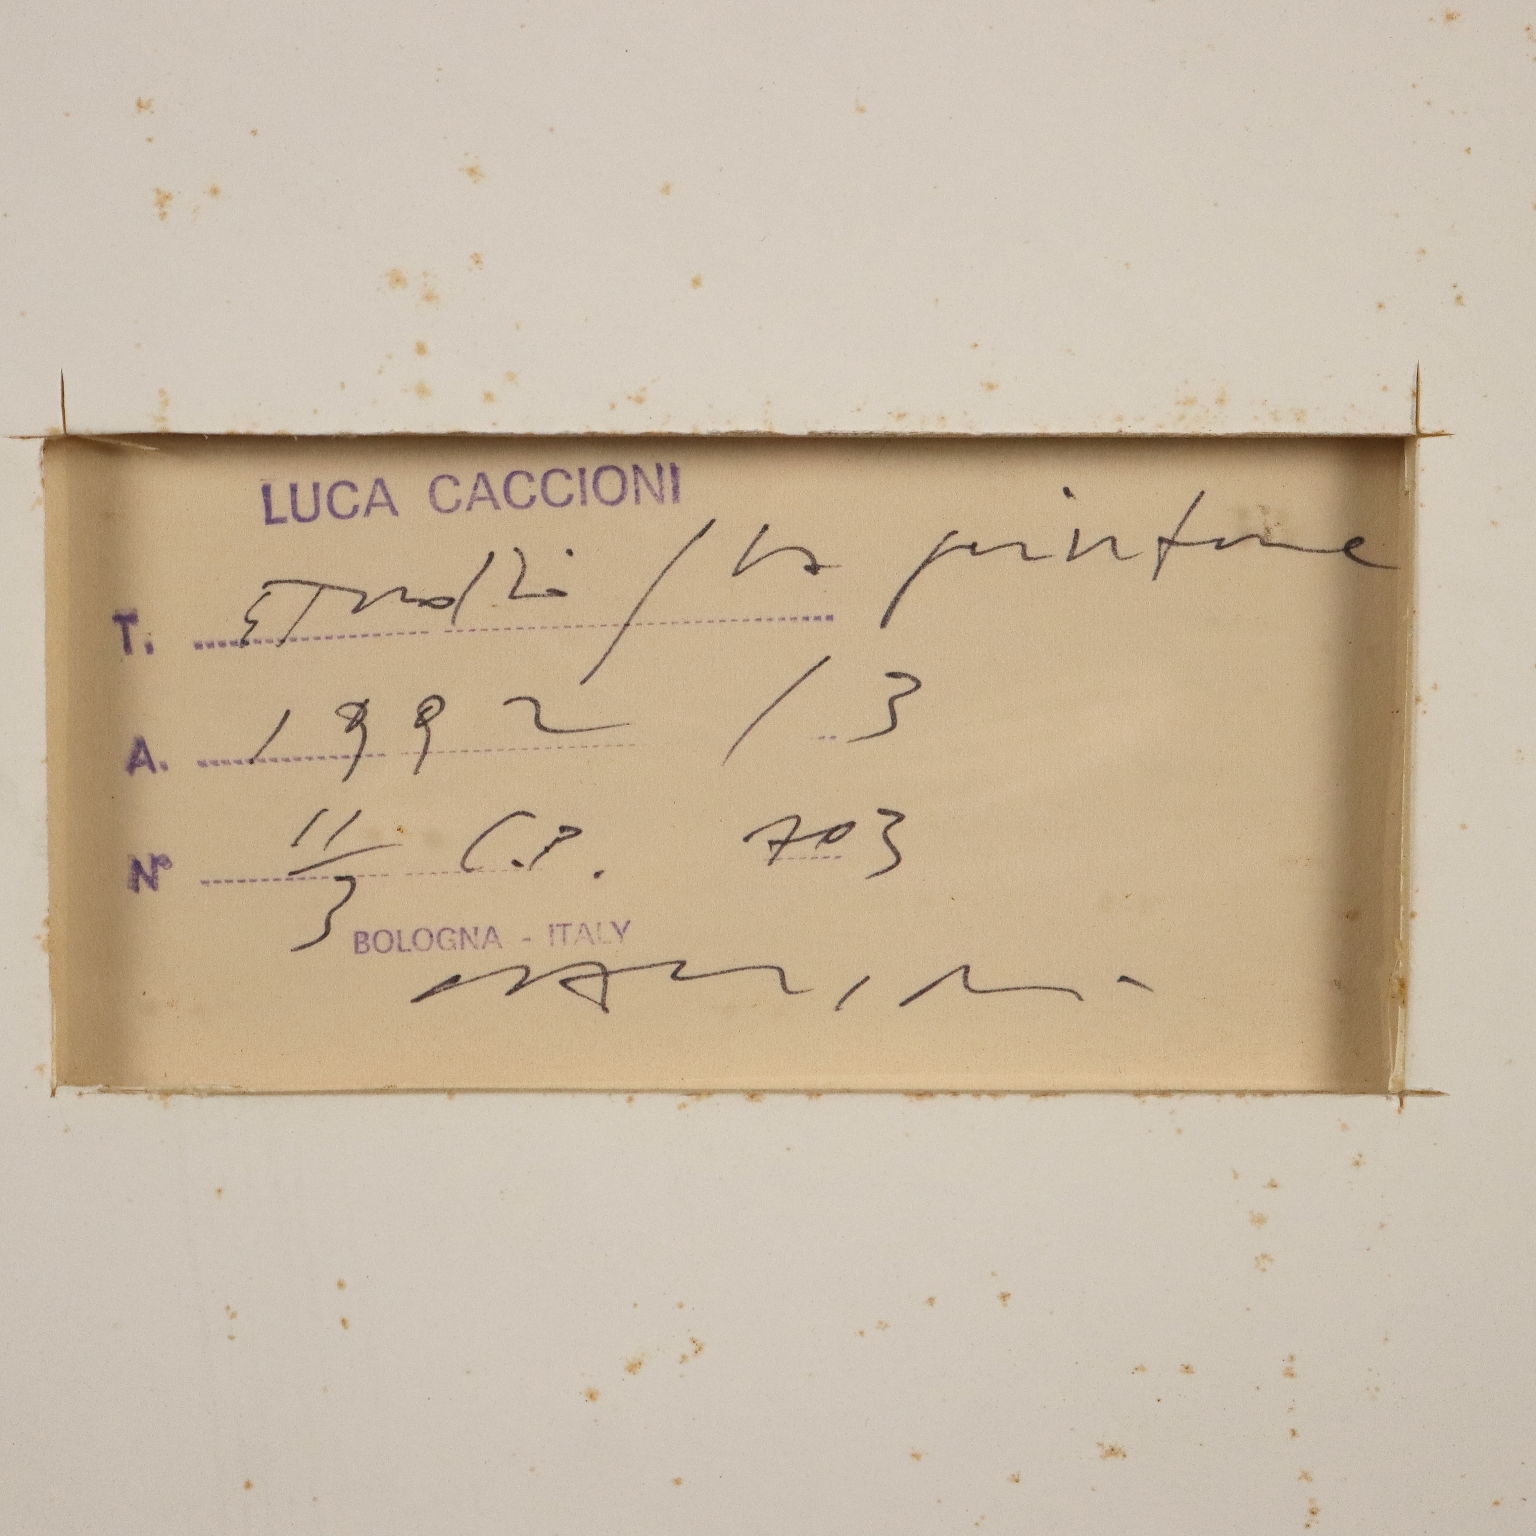 LUCA CACCIONI
T. Studi / pittore
A. 1992 / 3
N° 11/3 C.P. 703
BOLOGNA - ITALY